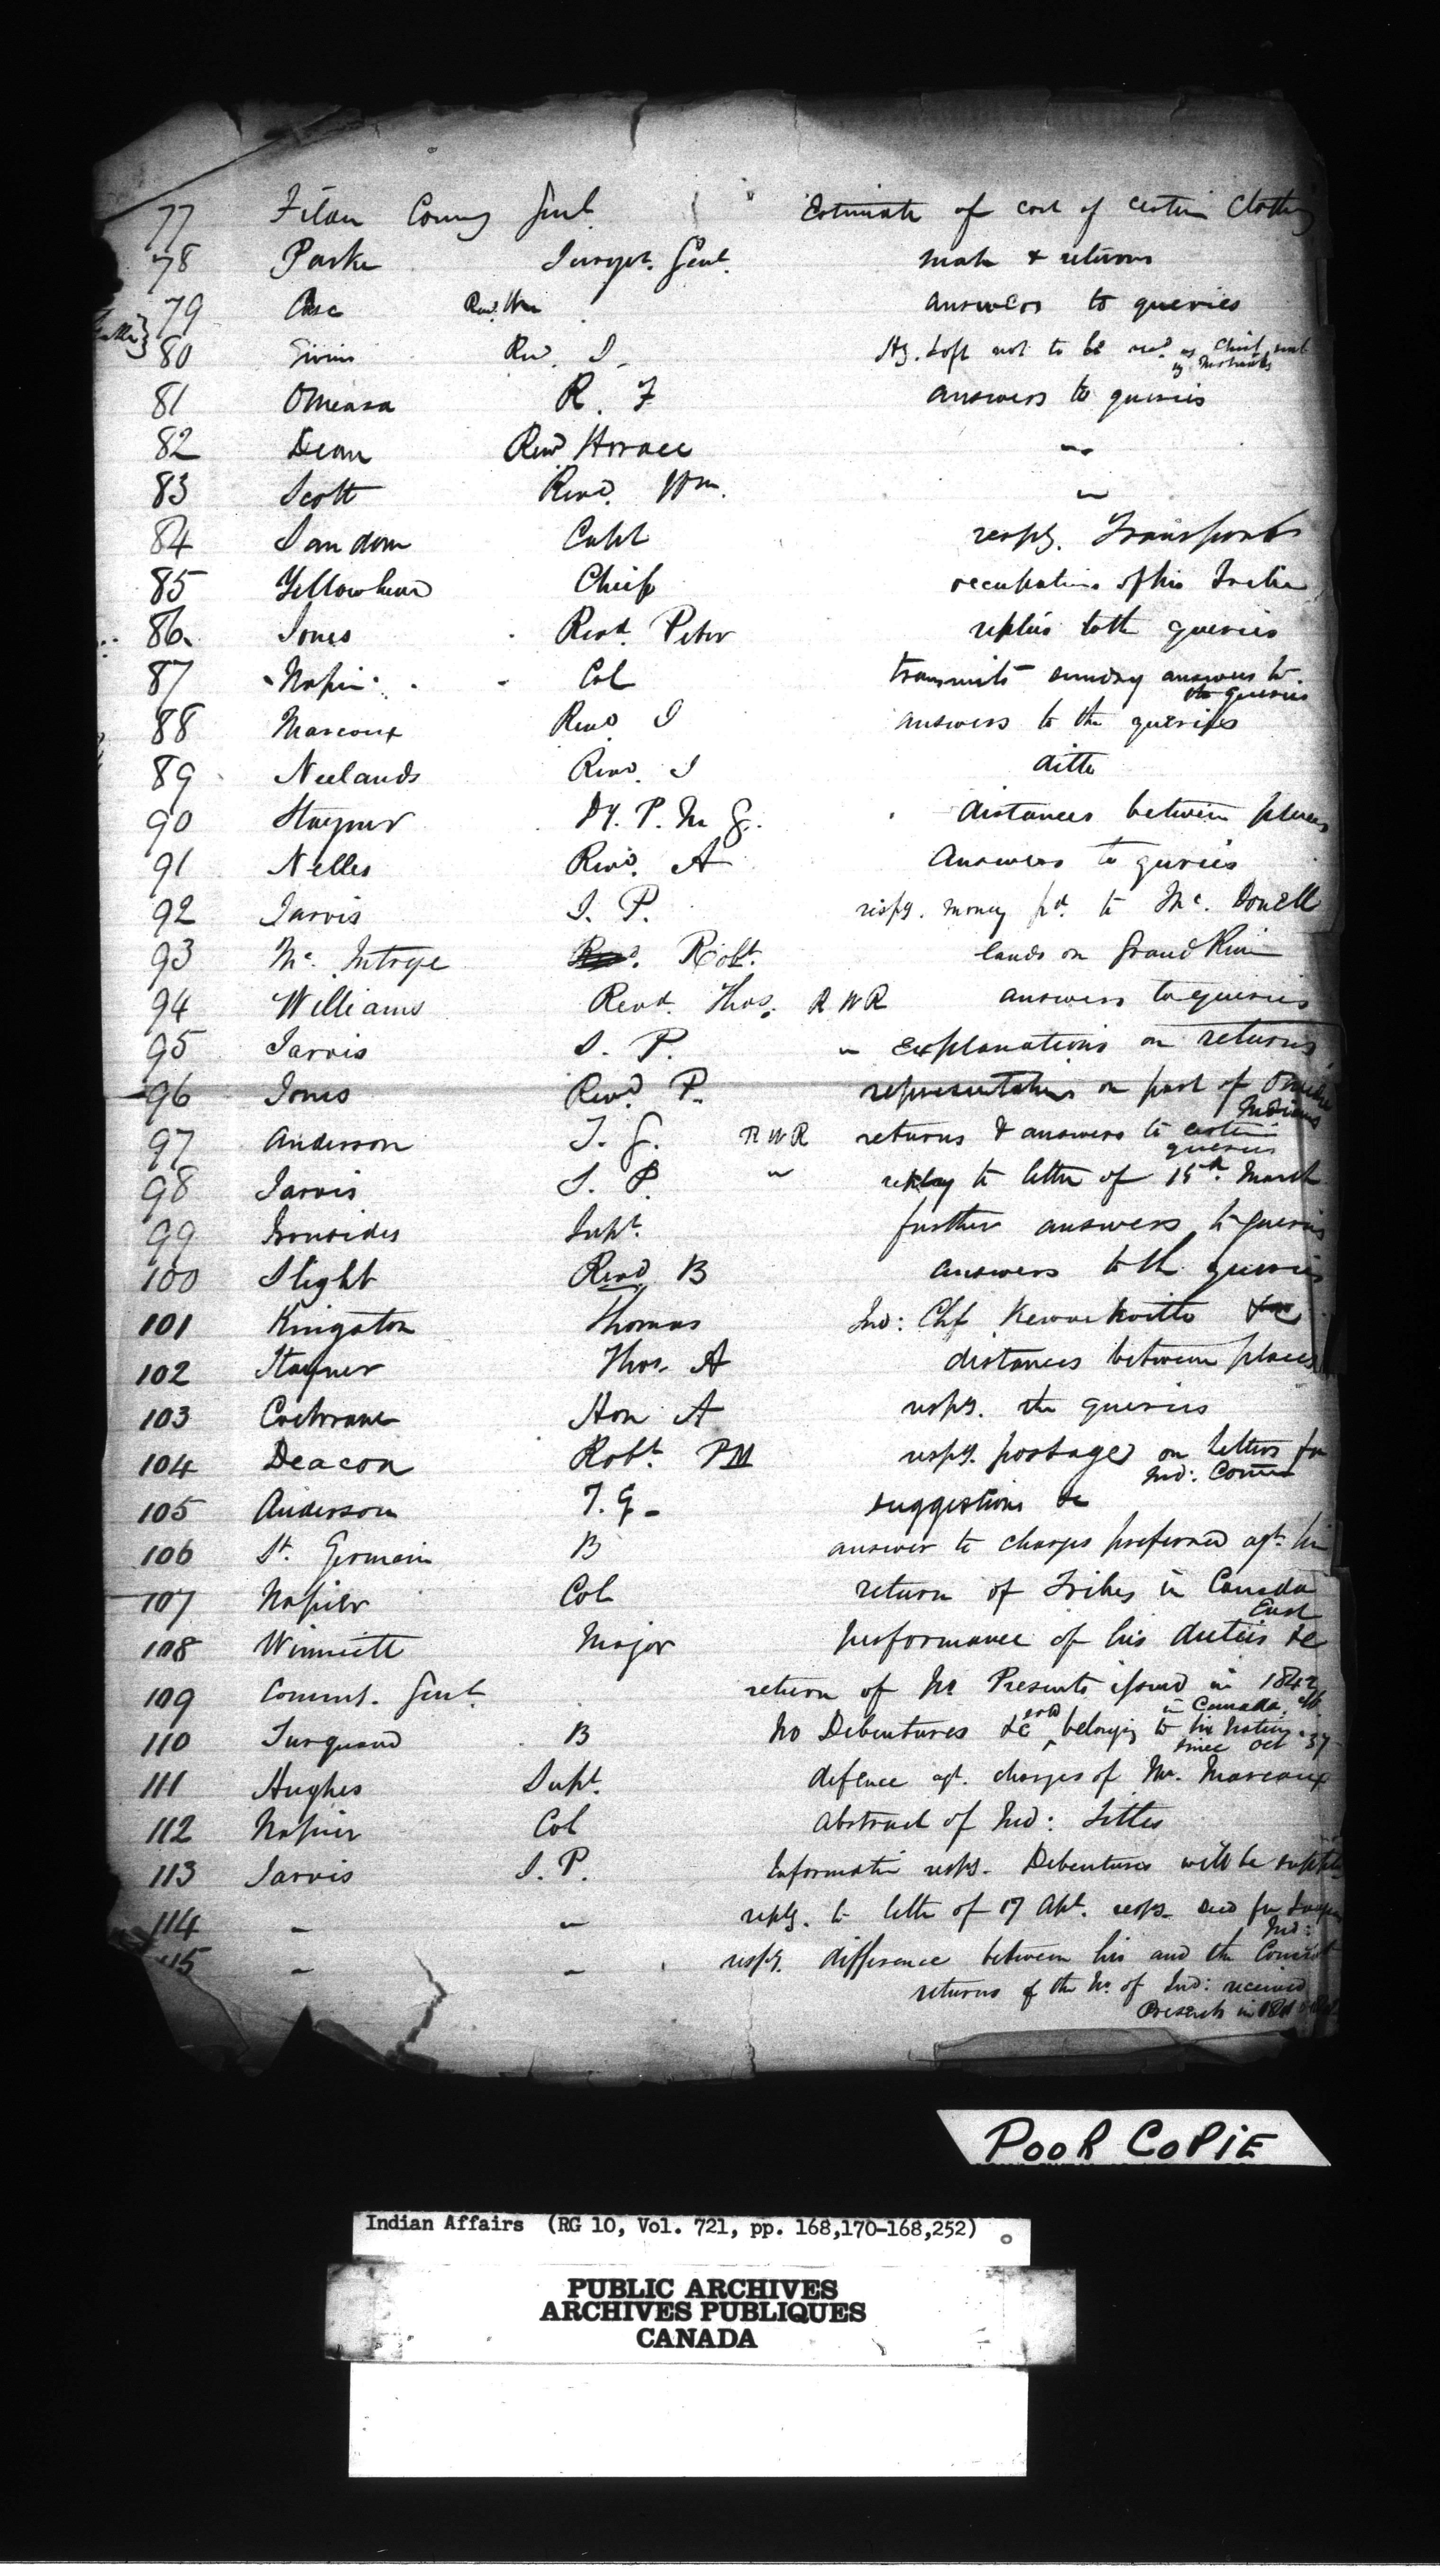 77 Filan Comy Genl Estimate of cost of certain Clothing
78 Parke Surveyr. Genl. & returns
79 Case Revd. Wm answers to queries
80 Givins Rev S. not to be as Chief
by Mohawks
81 Omeara R. F answers to queries
82 Dean Revd Horace "
83 Scott Revd. Wm. "
84 Sandom Capt respg. Transports
85 Yellowhead Chief occupations of his Tribe
86. Jones Revd. Peter replies to the queries
87 Napier Col transmits sunday answers to
the queries
88 Marcoux Revd J answers to the queries
89 Neelands Revd. J ditto
90 Stayner Dy. P. M G. distances between places
91 Nelles Revd. A Answers to queries
92 Jarvis S. P. respg. money pd. to Mc. Donell
93 Mc. Intrye Robt. lands on Grand River
94 Williams Revd. Thos. R W R answers to queries
95 Jarvis S. P. " Explanations on returns
96 Jones Revd P. representations on part of Oneida
Indians
97 Anderson T. G. R W R returns & answers to certain
queries
98 Jarvis S. P. " reply to letter of 15th. March
99 Ironsides Supt. further answers to queries
100 Slight Revd B answers to the queries
101 Kingston Thomas Ind: Chf
102 Stayner Thos. A distances between places
103 Cochrane Hon A respg. the queries
104 Deacon Robt. PM respg. postage on letters for
Ind: Comrs
105 Anderson T. G. suggestions &c
106 St. Germain B answer to charges preferred agt. him
107 Napier Col return of Tribes in Canada
East
108 Winniett Major performance of his duties &c
109 Commt. Genl. return of Presents issued in 1842
in Canada
110 Turquand B No Debentures &c sold belonging to
since Oct 37
111 Hughes Supt. defence agt. charges of Mr. Marcoux
112 Napier Col abstract of Ind: Titles
113 Jarvis S. P. Information respg. Debentures will be
114 " " reply. to letter of 17 Apl. respg deed for
Ind:
115 " " respg. difference between his and the
returns of the No. of Ind: received
Presents in
POOR COPIE
Indian Affairs (RG 10, Vol. 721, pp. 168,170-168,252)
PUBLIC ARCHIVES
ARCHIVES PUBLIQUES
CANADA